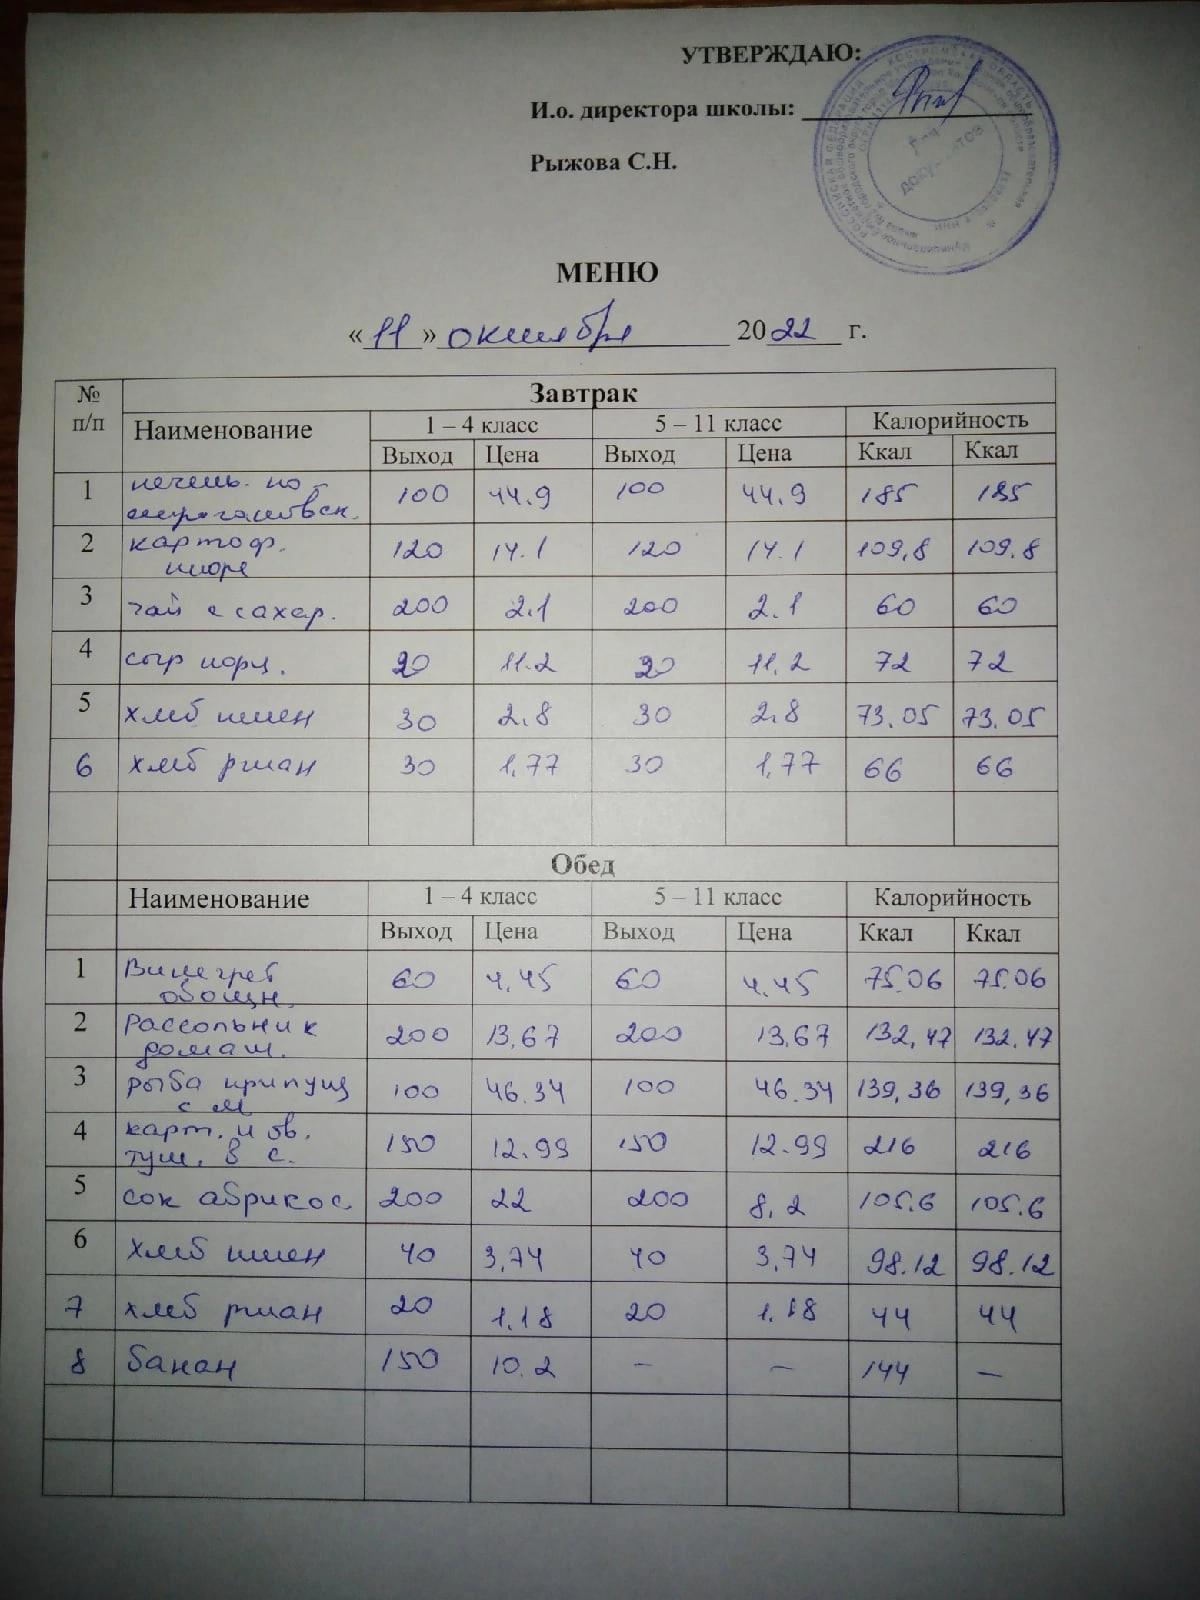 УТВЕРЖДАЮ:
И.о. директора школы:
Рыжова С.Н.
РОССИЙСКАЯ ФЕДЕРАЦИЯ КОСТРОМСКАЯ ОБЛАСТЬ
Для документов
МЕНЮ
«11» октября 2022 г.
№ п/п Завтрак
Наименование 1 – 4 класс 5 – 11 класс Калорийность
Выход Цена Выход Цена Ккал Ккал
1 печень. по-
строгановск. 100 44.9 100 44.9 185 185
2 картоф.
пюре 120 14.1 120 14.1 109,8 109.8
3 чай с сахар. 200 2.1 200 2.1 60 60
4 сыр порц. 20 11.2 20 11,2 72 72
5 хлеб пшен 30 2.8 30 2.8 73.05 73.05
6 хлеб ржан 30 1,77 30 1,77 66 66
Обед
Наименование 1 – 4 класс 5 – 11 класс Калорийность
Выход Цена Выход Цена Ккал Ккал
1 Винегрет
овощн. 60 4.45 60 4.45 75.06 75.06
2 Рассольник
домаш. 200 13,67 200 13,67 132,47 132,47
3 рыба припущ
с м 100 46.34 100 46.34 139,36 139,36
4 карт. и ов.
туш. в с. 150 12.99 150 12.99 216 216
5 сок абрикос. 200 22 200 8,2 105.6 105.6
6 хлеб пшен 40 3,74 40 3,74 98.12 98.12
7 хлеб ржан 20 1.18 20 1.18 44 44
8 банан 150 10.2 – – 144 –